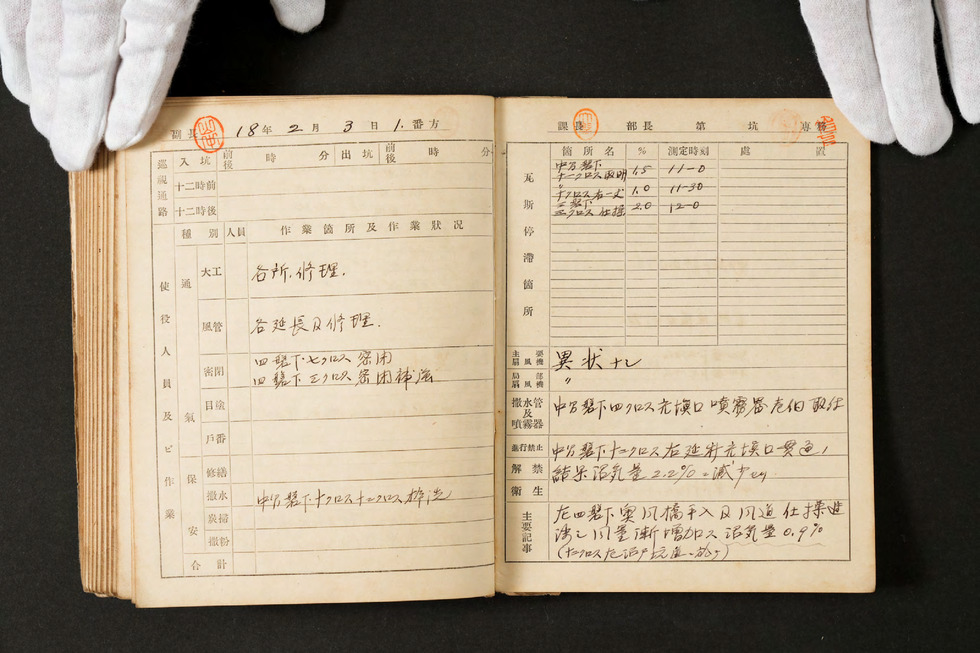 副長 18年 2月 3日 1.番方
巡視通路
入坑 前後 時 分 出坑 前後 時 分
十二時前
十二時後
使役人員及ビ作業
種別 人員 作業箇所及作業狀況
通氣
大工 各所.修理.
風管 各延長及修理.
密閉 四盤下七クロス密閉
四盤下三クロス密閉補強
目塗
戶番
保安
修繕
撒水 中分盤下十クロス十二クロス
炭掃
撒粉
合計
課長 部長 第 坑 専務
瓦斯停滯箇所
箇所名 % 測定時刻 處置
中分盤下
1.5 11-0
〃
十クロス右一 1.0 11-30
三盤下
三クロス仕操 2.0 12-0
主要扇風機 異状ナし
局部扇風機 〃
撒水管及噴霧器 中分盤下四クロス元坑口噴霧器 取付
進行禁止 中分盤下十二クロス右延 坑口貫通ノ
解禁 結果沼気量2.2%ニ減少
衛生
主要記事
左四盤下 風橋手入及風道仕操進
渉シ風量漸増加ス沼気量0.9%